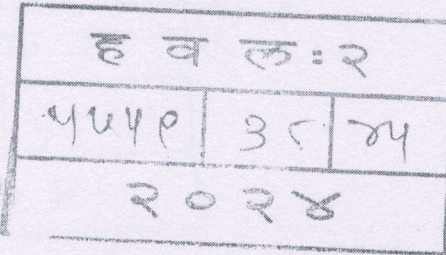 ह व ल : २
५५५९ ३८ ७५
२०२४